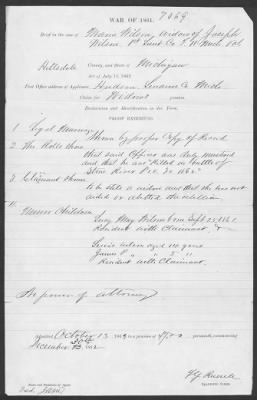 WAR OF 1861.
7069
Brief in the case of Maria Wilson, widow of Joseph
Wilson, 1st Lieut Co. F. Mich Vols
Hillsdale County, and State of Michigan
Act of July 14, 1862
Post Office address of Applicant: Hudson Lenawee Co Mich
Claim for Widows pension
Declaration and Identification in due Form.
PROOF EXHIBITED.
1. Legal Marriage
Shown by proper Copy of Record
2. The Rolls show
that said Officer was duly mustered
and that he was "Killed in battle of
Stone River Dec. 31 1862"
3. Claimant shown
to be still a widow and that she has not
aided or abetted the rebellion.
4. Minor Children
Lucy May Wilson born Sept 25 1861.
Resident with Claimant &
Lewis Wilson aged 10 years
James P. " " 5 "
Resident with Claimant.
No power of attorney
October 13 1863 to a pension of $17.00 per month, commencing
December 30th 1862.